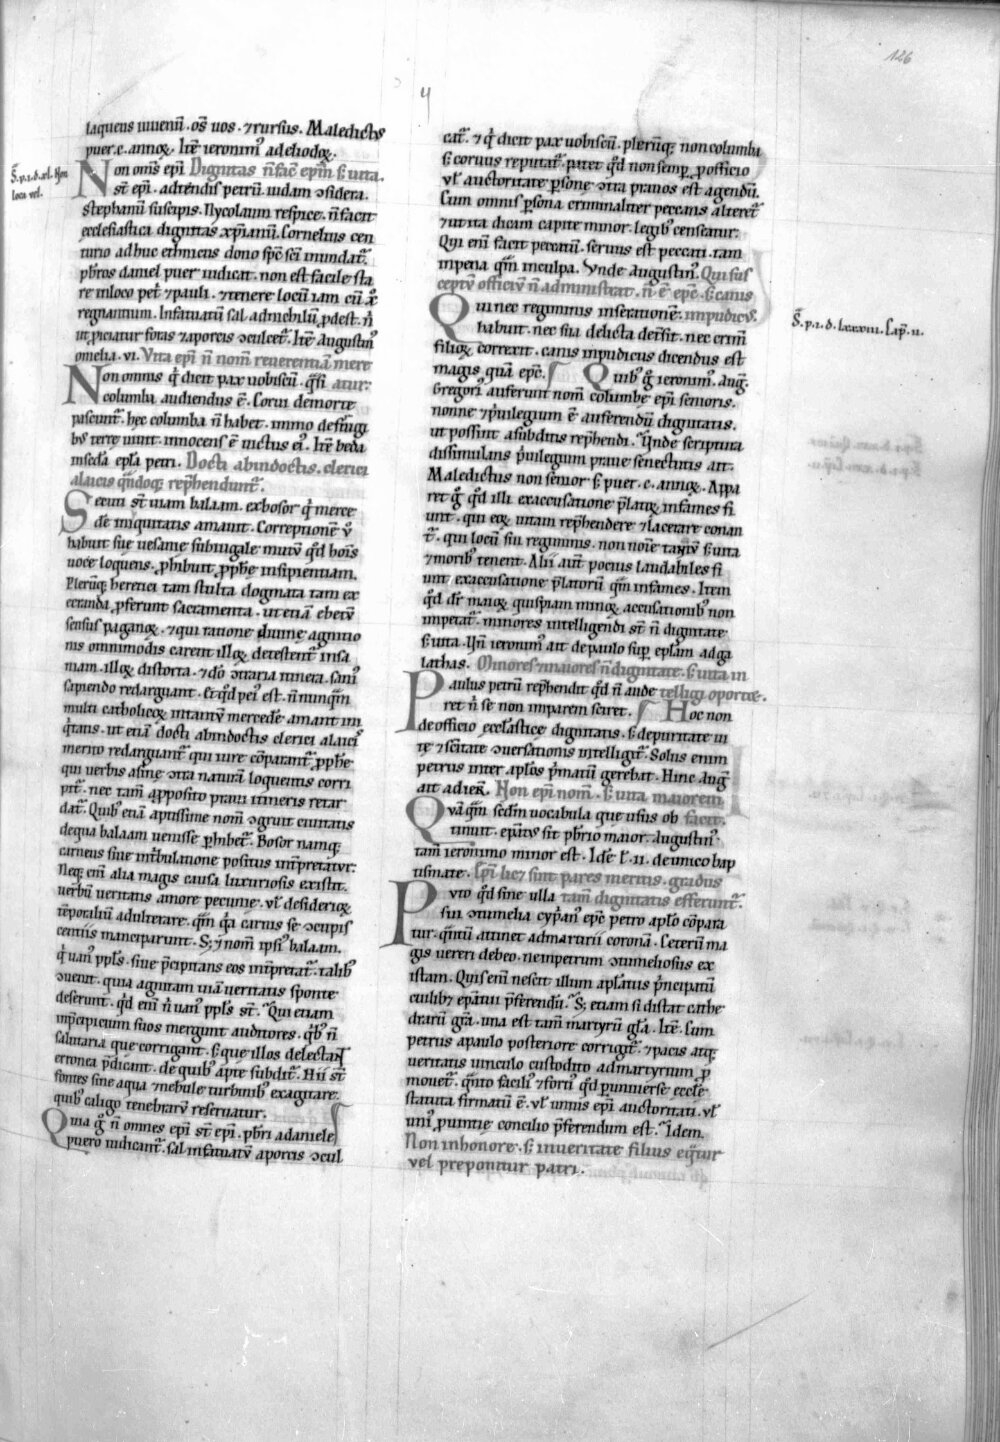 126
laqueus iuuenū. os̄ uos. ⁊ rursus. Maledictus
puer .c. annoꝝ. Itē ieronim᾽ ad eliodoꝝ.
Non omīs ep̄i Dignitas n̄ fac̄ ep̄m ſꝫ uita.
st̄ ep̄i. adtendis petrū. iudam ↄsidera.
stephanū suscipis. Nycolaum respice. n̄ facit
ęcclesiastica dignitas xp̄ianū. Cornelius cen
turio adhuc ethnicus dono sp̄c sc̄i inundat̄.
pb̄ros daniel puer iudicat. non est facile sta
re in loco pet̄ ⁊ pauli. ⁊ tenere locū iam cū xp̄o
regnantium. Infatuatū sal ad nichilū ꝓdest. n̄
ut ꝓiciatur foras ⁊ a porcis ↄculcet̄. Itē Augustin᾽
omelia .vi. Vita ep̄i n̄ nom̄ reuerentiā mere
Non omnis q̇ dicit pax uobiscū. q̄si atur.
columba audiendus ē. Corui de morte
pascunt̄. hęc columba n̄ habet. immo de frugi
b᾽ terre uiuit. innocens ē uictus ei᾽. Itē beda
in sc̄da ep̄la petri. Docti ab indoctis. clerici
a laicis q̄ndoqꝫ rep̄hendunt̄.
Secuti st̄ uiam balaam. ex bosor q̇ merce
dē iniquitatis amauit. Correptionē ṽ
habuit sue uesanię subiugale mutū qd̄ hoīs
uoce loquens. ꝓhibuit ꝓph̄e insipientiam.
Plerūqꝫ heretici tam stulta dogmata tam ex
ecranda ꝓferunt sacramenta. ut etiā ebetū
sensus paganoꝝ. ⁊ qui ratione diuinę agnitio
nis omnimodis carent illoꝝ detestent̄ insa
niam. illoꝝ distorta. ⁊ dō ↄtraria itinera. sani᾽
sapiendo redarguant. Et qd̄ pei᾽ est. n̄ nunq̄m
multi catholicoꝝ intantū mercedē amant ini
q̇tatis. ut etiā docti ab indoctis clerici a laicis
merito redarguant̄ qui iure cōparant̄ ꝓph̄e
qui uerbis asine ↄtra naturā loquentis corri
pit̄. nec tam̄ a ꝓposito praui itineris retar
dat̄. Quib᾽ etiā aptissime nom̄ ↄgruit ciuitatis
de qua balaam uenisse ꝓhibet̄. Bosor namqꝫ
carneus siue in tribulatione positus int̄pretatur.
Neqꝫ enī alia magis causa luxuriosis existit.
uerbū ueritatis amore pecunię. uł desiderioꝝ
tēporaliū adulterare. q̄m q̇a carnis se ↄcupis
centiis manciparunt. Sꝫ ⁊ nom̄ ipsi᾽ balaam.
q̇ uan᾽ ppl̄s. siue p̄cipitans eos int̄pretat̄. talib᾽
ↄuenit. quia agnitam uiā ueritatis sponte
deserunt. qd̄ enī n̄ uan᾽ ppl̄s st̄. Qui etiam
in p̄cipicium suos mergunt auditores. q̇b᾽ n̄
salutaria que corrigant. ſꝫ que illos delectant
erronea p̄dicant. de quib᾽ apte subdit̄. Hii st̄
fontes sine aqua ⁊ nebule turbinib᾽ exagitate.
quib᾽ caligo tenebrarū reseruatur.
Quia g̊ n̄ omnes ep̄i st̄ ep̄i. pb̄ri a daniele
puero iudicant̄. sal infatuatū a porcis ↄcul
cat̄. ⁊ q̇ dicit pax uobiscū. plerūqꝫ non columba
ſꝫ coruus reputat̄. patet qd̄ non semꝑ ꝓ officio
uł auctoritate ꝑsone ↄtra prauos est agendū.
Cum omnis ꝑsona criminaliter peccans alteret̄
⁊ ut ita dicam capite minor. legib᾽ censeatur.
Qui enī facit peccatū. seruus est peccati. tam
in pena q̄m in culpa. Vnde Augustin᾽. Qui sus
ceptū officiū n̄ administrat. n̄ ē ep̄c. ſꝫ canis
Qui nec regiminis in se rationē. impudic᾽.
habuit. nec sua delicta detersit. nec crim̄
filioꝝ correxit. canis inpudicus dicendus est
magis quā ep̄c. Quib᾽ g̊ ieronim᾽. Aug̊.
Gregori᾽ auferunt nom̄ columbę ep̄i senioris.
nonne ⁊ ṗuilegium ē auferendū dignitatis.
ut possint a subditis rep̄hendi. Vnde scriptura
dissimulans ṗuilegium praue senectutis ait.
Maledictus non senior ſꝫ puer .c. annoꝝ. Appa
ret g̊ qd̄ illi ex accusatione p̄latoꝝ infames fi
unt. qui eoꝝ uitam rep̄hendere ⁊ lacerare conan
t̄. qui locū sui regiminis. non noīe tantū ſꝫ uita
⁊ morib᾽ tenent. Alii aut̄ pocius laudabiles fi
unt ex accusatione p̄latorū q̄m infames. Item
qd̄ dr̄ maioꝝ quispiam minoꝝ accusationib᾽ non
impetat̄. minores intelligendi st̄ n̄ dignitate
ſꝫ uita. Vn̄ ieronim᾽ ait de paulo suꝑ ep̄lam ad ga
lathas. Minores ⁊ maiores n̄ dignitate. ſꝫ uita in
Paulus petrū rep̄hendit qd̄ n̄ aude telligi oportet.
ret n̄ se non imparem sciret. Hoc non
de officio eccl̄astice dignitatis. ſꝫ de puritate ui
tę ⁊ sc̄itate ↄuersationis intelligit̄. Solus enim
petrus inter ap̄los ṗmatū gerebat. Hinc Aug̊
ait ad ieꝝ. Non ep̄i nom̄. ſꝫ uita maiorem
Quāq̄m sedm̄ uocabula que usus ob facit.
tinuit. ep̄at᾽ sit pb̄rio maior. Augustin᾽.
tam̄ ieronimo minor est. Idē .lī .ii. de unico bap
tismate. Ep̄i licꝫ sint pares meritis. gradus
Puto qd̄ sine ulla tam̄ dignitatis efferunt̄.
sui ↄtumelia cyp̄an᾽ ep̄c petro ap̄lo cōpara
tur. q̄ntū attinet ad martirii coronā. Ceterū ma
gis uereri debeo. ne in petrum ↄtumeliosus ex
istam. Quis enī nescit illum ap̄latus ṗncipatū
cuilibꝫ ep̄atui p̄ferendū. Sꝫ etiam si distat cathe
drarū gr̄a. una est tam̄ martyrū gl̄a. Itē. Cum
petrus a paulo posteriore corrigit̄. ⁊ pacis atqꝫ
ueritatis uinculo custodito ad martyrium ꝓ
mouet̄. q̄nto facili᾽ ⁊ forti᾽ qd̄ p uniuersę eccl̄ę
statuta firmatū ē. uł unius ep̄i auctoritati. uł
uni᾽ ꝓuintię concilio p̄ferendum est. Idem.
Non in honore. ſꝫ in ueritate filius eq̄tur
vel preponitur patri.
S̄. p. i. d. xl. Non
loca vel.
S̄. p. i. d. lxxxiii. Cap̄. ii.